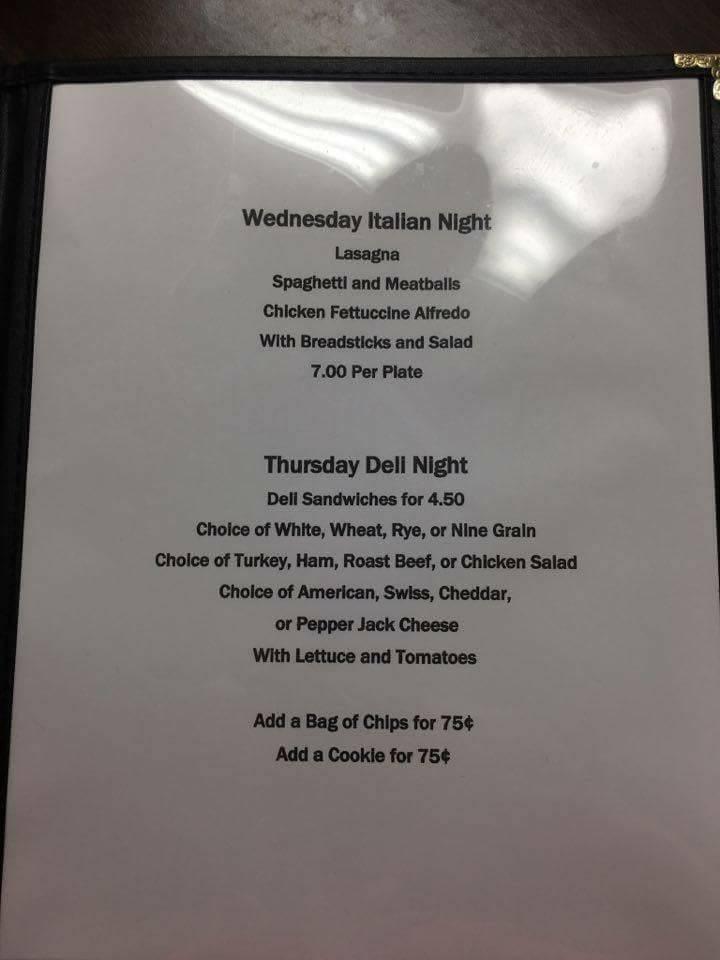 Wednesday Italian Night
Lasagna
Spaghetti and Meatballs
Chicken Fettuccine Alfredo
With Breadsticks and Salad
7.00 Per Plate
Thursday Deli Night
Deli Sandwiches for 4.50
Choice of White, Wheat, Rye, or Nine Grain
Choice of Turkey, Ham, Roast Beef, or Chicken Salad
Choice of American, Swiss, Cheddar,
or Pepper Jack Cheese
With Lettuce and Tomatoes
Add a Bag of Chips for 75¢
Add a Cookie for 75¢